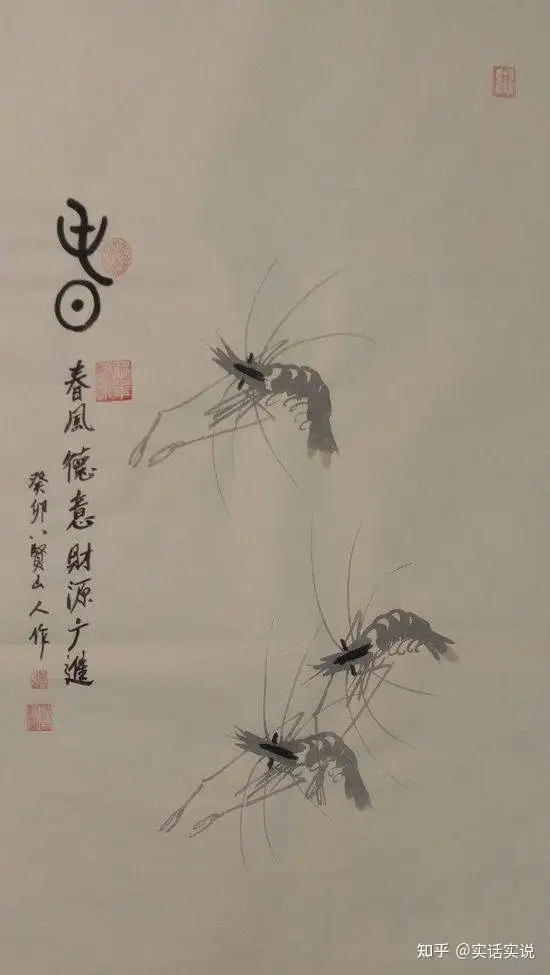 春風德意財源广進
癸卯八賢山人作
知乎 @实话实说